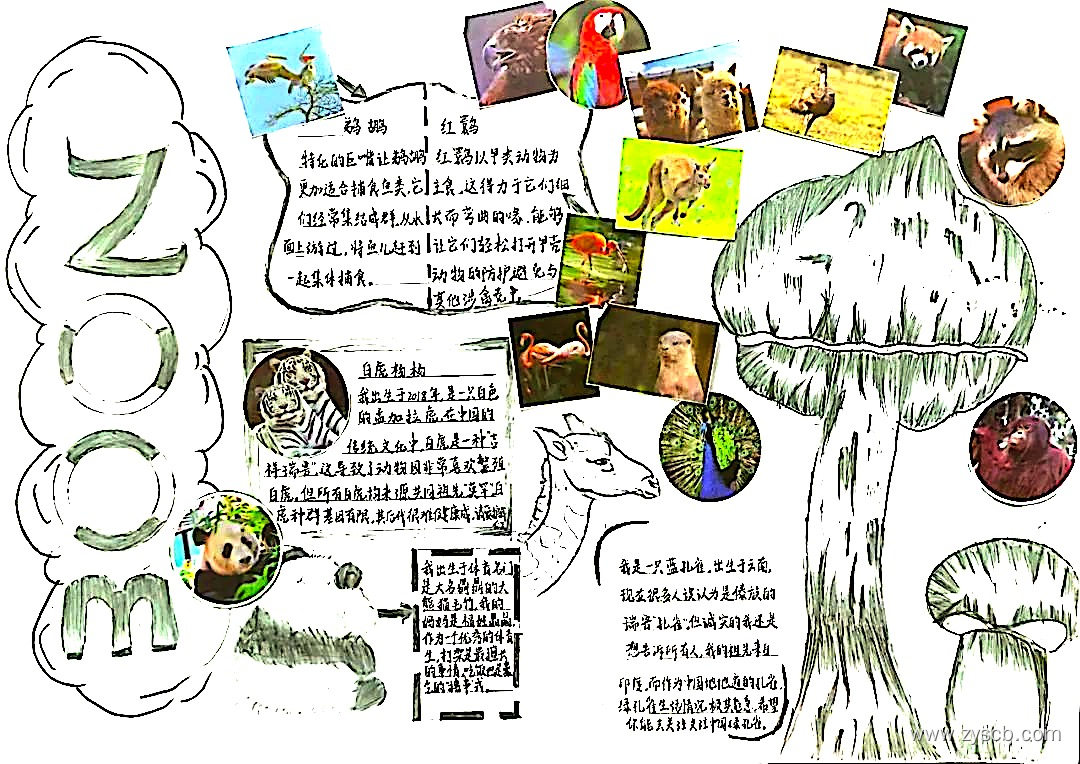 ZOOm
鹈鹕
特化的巨嘴让鹈鹕
更加适合捕食鱼类,它
们经常集结成群,从水
面上游过,将鱼儿赶到
一起集体捕食。
红鹮
红鹮以甲壳动物为
主食,这得力于它们细
长而弯曲的喙,能够
让它们轻松打开甲壳
动物的防护避免与
其他涉禽竞争。
白虎
我出生于2018年,是一只白色
的孟加拉虎,在中国的
传统文化中白虎是一种"吉
祥瑞兽",这导致了动物园非常喜欢繁殖
白虎,但所有白虎均来源共同祖先"莫罕"白
虎种群基因有限,其后代很难健康成
我出生于体育名门
是大名鼎鼎的大
熊猫
作为一个优秀的体育
生,打架是最担
的事情,吃饭也是
我是一只蓝孔雀,出生于云南,
现在很多人误认为是傣族的
瑞兽"孔雀",但诚实的我还是
想告诉所有人,我的祖先来自
印度,而作为中国地地道道的孔雀,
绿孔雀生境情况极其危急,希望
你能去关注关注中国绿孔雀。
www.zyscb.com